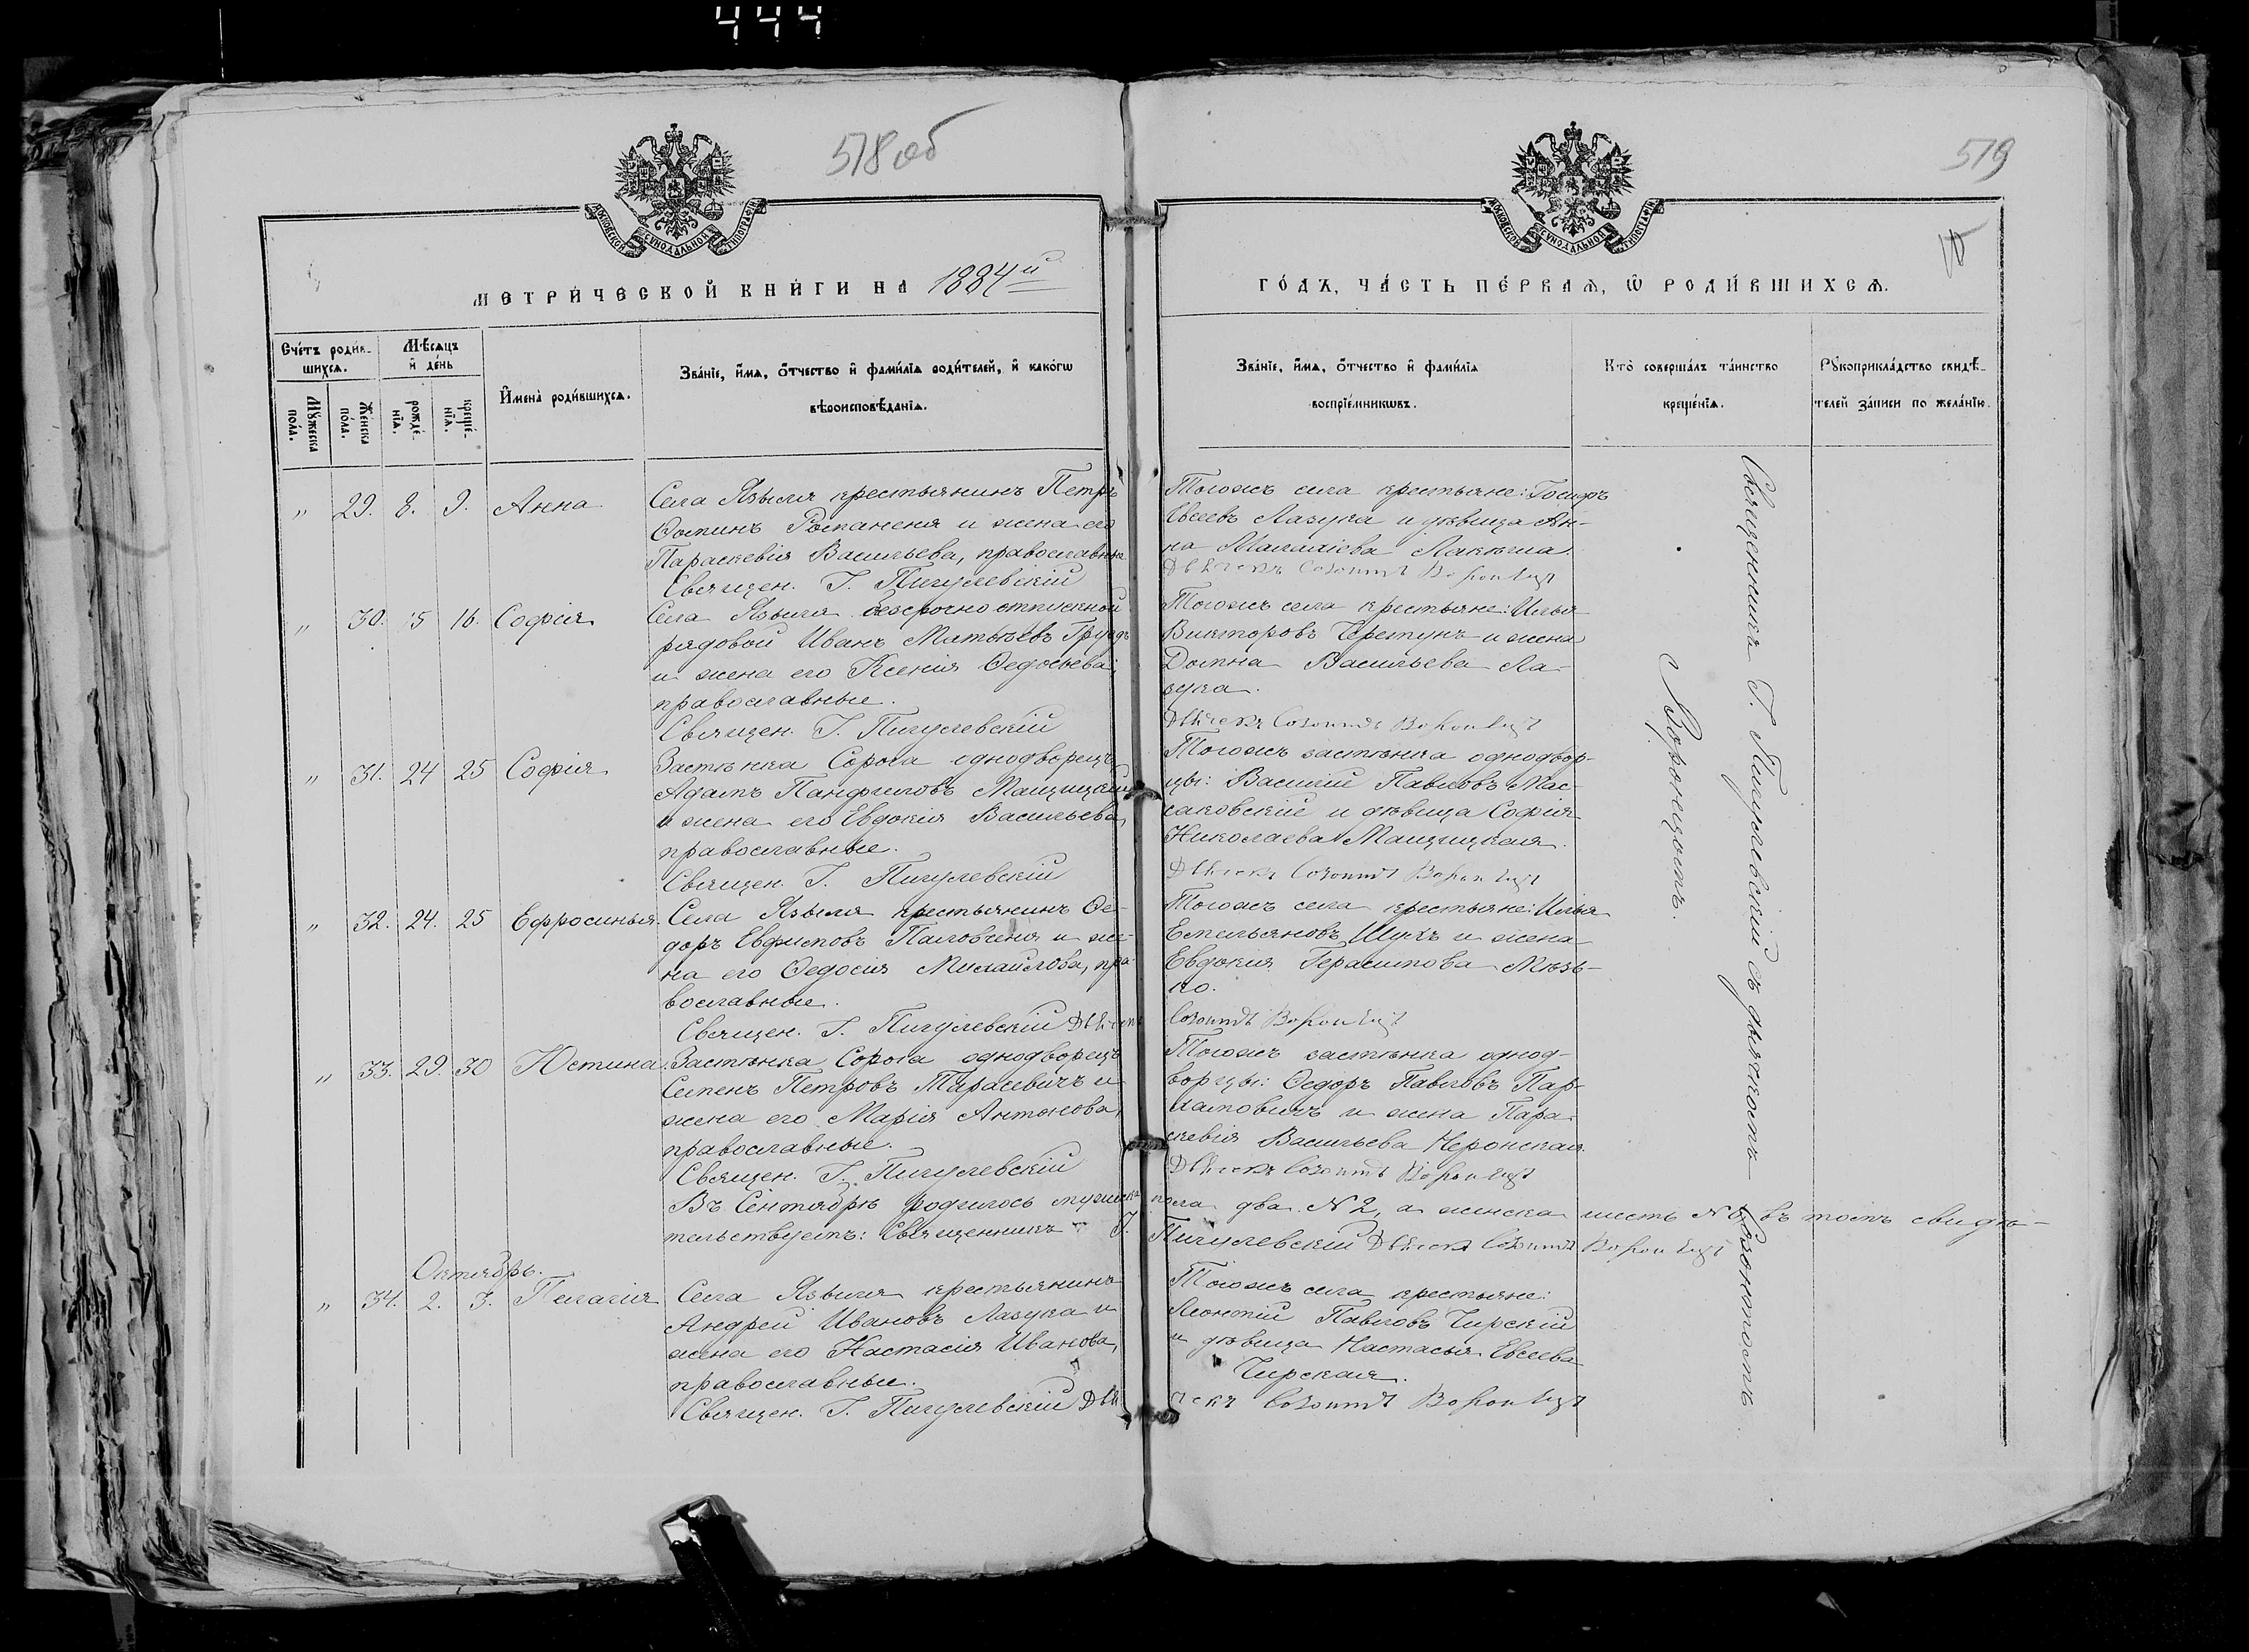 444
518 об
519
МОСКОВСКОЙ СѴНОДАЛЬНОЙ ТИПОГРАФІИ
МОСКОВСКОЙ СѴНОДАЛЬНОЙ ТИПОГРАФІИ
МЕТРИ́ЧЕСКОЙ КНИ́ГИ НА 1884й
ГО́ДЪ, ЧА́СТЬ ПЕ́РВАѦ, Ѡ РОДИ́ВШИХСѦ.
Сче́тъ роди́в-
шихсѧ.
Мѣ́сѧцъ
и҆ де́нь
Мꙋ́жеска
по́ла.
Же́нска
по́ла.
рожде́-
нїѧ.
креще́-
нїѧ.
И҆мена̀ роди́вшихсѧ.
Зва́нїе, и҆́мѧ, ѻ҆́тчество и҆ фами́лїѧ роди́телей, и҆ како́гѡ
вѣроисповѣ́данїѧ.
Зва́нїе, и҆́мѧ, ѻ҆́тчество и҆ фами́лїѧ
воспрїе́мникѡвъ.
Кто̀ соверша́лъ та́инство
креще́нїѧ.
Рꙋкоприкла́дство свидѣ́-
телей за́писи по жела́нїю.
" 29. 8. 9. Анна
Села Языля крестьянинъ Петръ
Ѳоминъ Романеня и жена его
Параскевія Васильева, православные
Священ. I. Пигулевскій
Тогожъ села крестьяне:
Евсеевъ Лазука и дѣвица Ан-
на
Дьячекъ Созонтъ Воронецъ
" 30. 15 16. Софія
Села Языля безсрочно отпускной
рядовой Иванъ Матѣевъ Груздъ
и жена его Ксенія Ѳедосьева,
православные.
Священ. I. Пигулевскій
Тогожъ села крестьяне: Илья
Викторовъ Черетунъ и жена
Домна Васильева Ла-
зука.
Дьячекъ Созонтъ Воронецъ
" 31. 24 25 Софія
Застѣнка Сорога однодворецъ
Адамъ Панфиловъ Мацицкій
и жена его Евдокія Васильева,
православные.
Священ. I. Пигулевскій
Тогожъ застѣнка однодвор-
цы: Василій Павловъ Мас-
саковскій и дѣвица Софія
Николаева Мацицкая.
Дьячекъ Созонтъ Воронецъ
" 32. 24. 25 Ефросинья.
Села Языля крестьянинъ Ѳе-
доръ Евфимовъ Паловченя и же-
на его Ѳедосія Михайлова, пра-
вославные.
Священ. I. Пигулевскій Дьячекъ
Тогожъ села крестьяне: Илья
Емельяновъ Шухъ и жена
Евдокія Герасимова Мѣзь-
ко.
Созонтъ Воронецъ
" 33. 29. 30 Юстина.
Застѣнка Сорога однодворецъ
Семенъ Петровъ Тарасевичъ и
жена его Марія Антонова,
православные.
Священ. I. Пигулевскій
Тогожъ застѣнка однод-
ворцы: Ѳедоръ Павловъ Пар-
хамовичъ и жена Пара-
скевія Васильева Неронская.
Дьячекъ Созонтъ Воронецъ
Въ Сентябрѣ родилось мужеска пола два N 2, а женска шесть N 6, въ томъ свидѣ-
тельствуемъ: Священникъ I. Пигулевскій Дьячекъ Созонтъ Воронецъ
Октябрь.
" 34. 2. 3. Пелагія
Села Языля крестьянинъ
Андрей Ивановъ Лазука и
жена его Настасія Иванова,
православные.
Священ. I. Пигулевскій Дья
Тогожъ села крестьяне:
Леонтій Павловъ Чирскій
и дѣвица Настасья Евсеева
Чирская.
чекъ Созонтъ Воронецъ
Священникъ I. Пигулевскій съ дьячкомъ Созонтомъ
Воронцомъ.